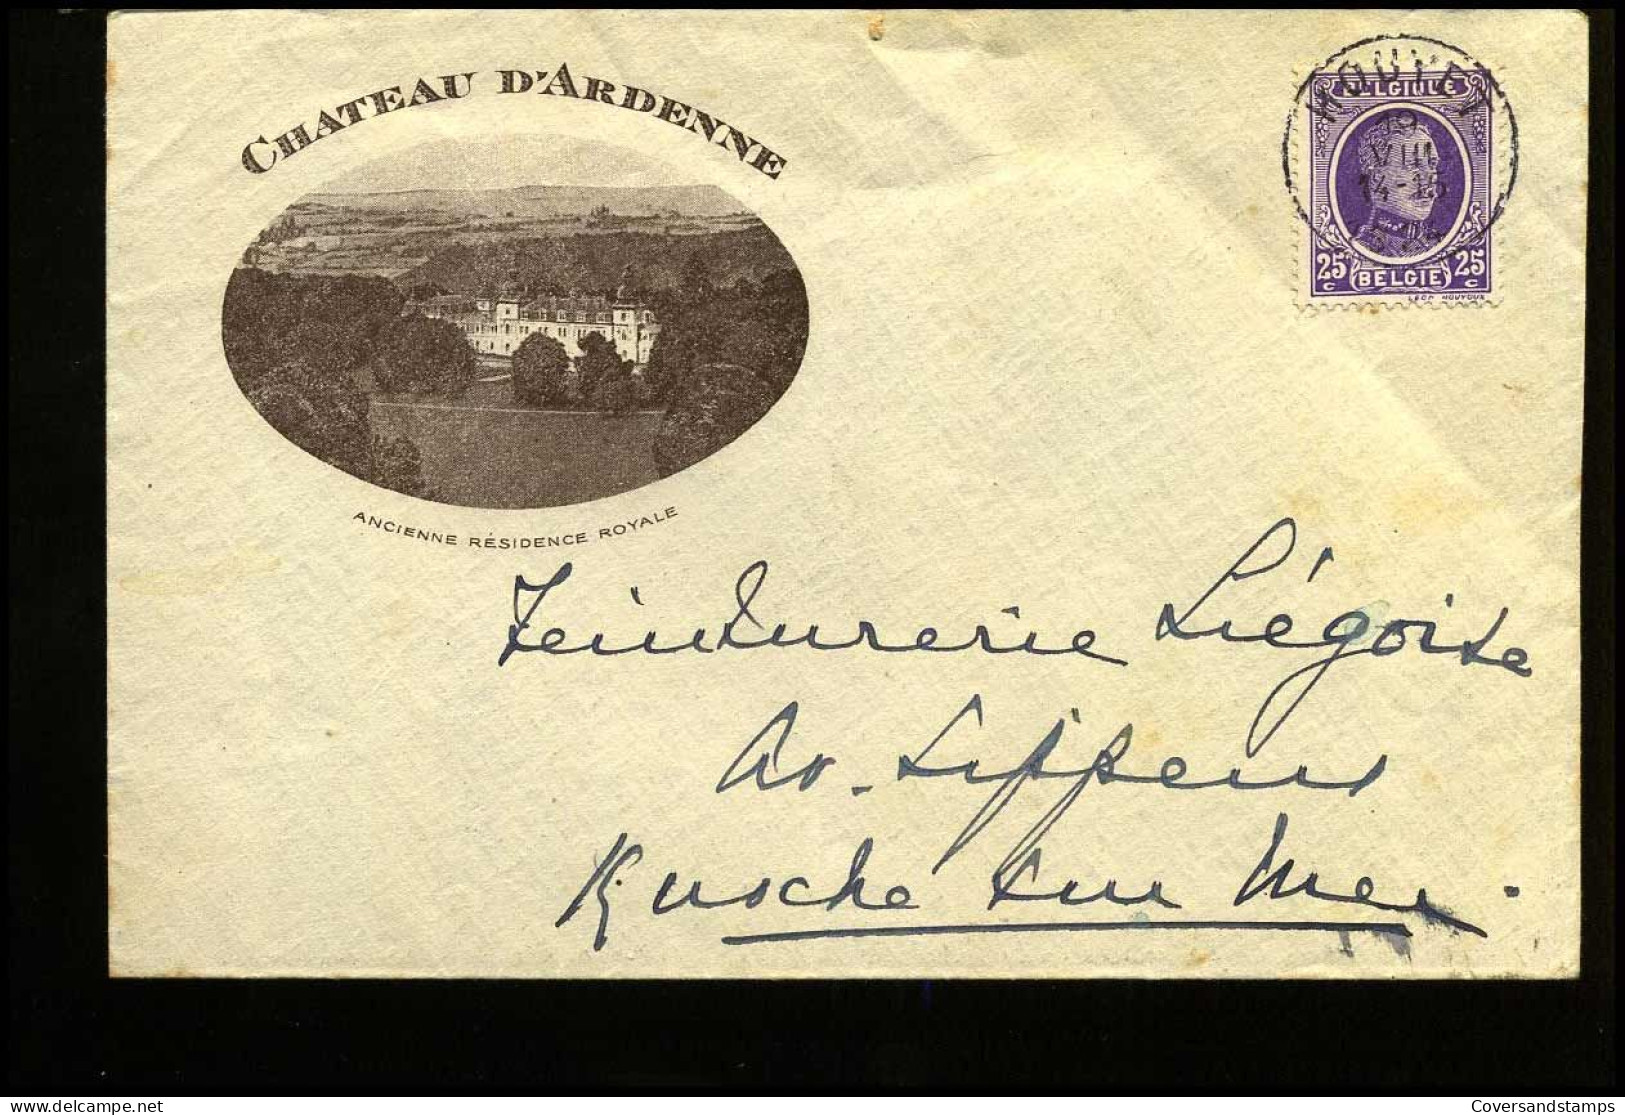 CHATEAU D'ARDENNE
ANCIENNE RÉSIDENCE ROYALE
HOUYET
VIII
14-15
BELGIQUE
25 c BELGIE 25 c
HOUYOUX
Teinturerie Liégoise
Av. Lippens
Knocke sur Mer.
Coversandstamps